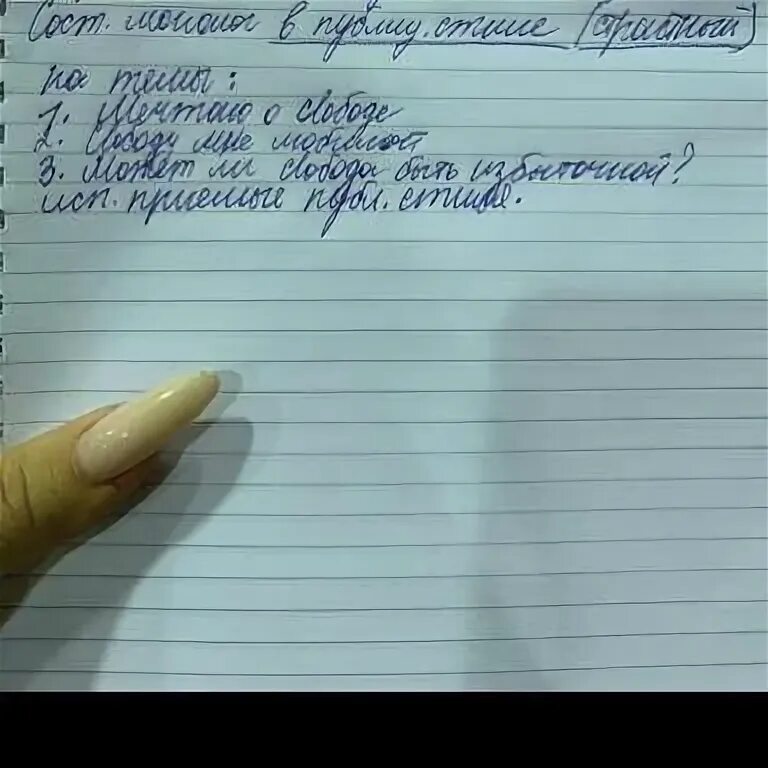 Сост. монолог в публиц. стиле (страстный)
на темы:
1. Мечтаю о свободе
2. Свободу мне
3. Может ли свобода быть избыточной?
исп. приемы публ. стиля.